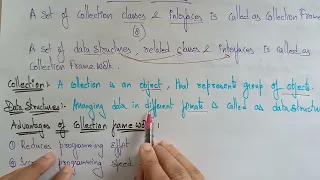 A set of collection classes & interfaces is called as Collection Frame
(or)
A set of data structures, related classes & interfaces is called as
Collection Frame work.
Collection:- A collection is an object, that represents group of objects.
Data Structures:- Arranging data in different formats is called as data structure
Advantages of Collection Frame work:
① Reduces programming effort
② programming speed